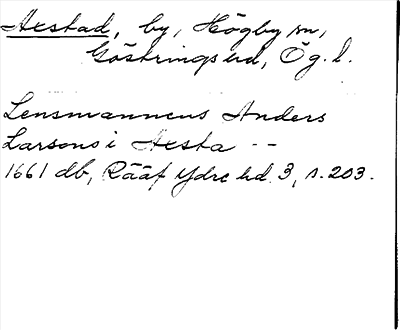 Hestad, by, Högby sn,
Göstrings hd, Ög. l.
Lensmannens Anders
Larsons i Hesta --
1661 db, Rääf Ydre hd. 3, s. 203.